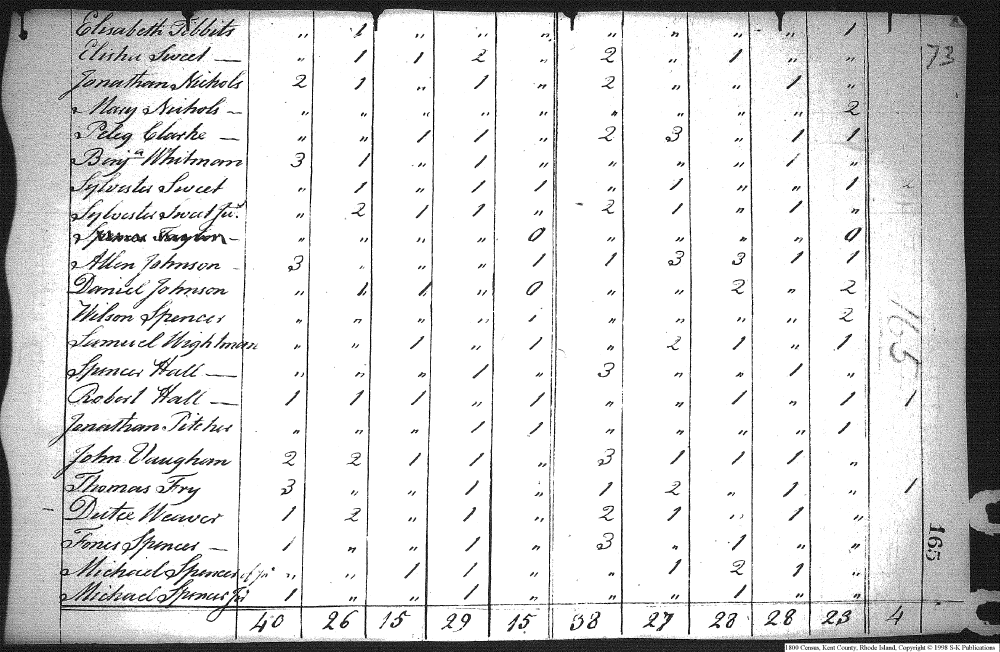 Elisabeth Tibbits " 1 " " " " " " " 1
Elisha Sweet — " 1 1 2 " 2 " 1 " " 73
Jonathan Nichols 2 1 " 1 " 2 " " 1 "
Mary Nichols — " " " " " " " " " 2
Peleg Clarke — " " 1 1 " 2 3 " 1 1
Benja Whitman 3 1 " 1 " " " " 1 "
Sylvester Sweet " 1 " 1 1 " 1 " " 1
Sylvester Sweet Jur. " 2 1 1 " 2 1 " 1 "
" " " " 0 " " " " 0
Allen Johnson 3 " " " 1 1 3 3 1 1
Daniel Johnson " 1 1 " 0 " " 2 " 2
Wilson Spencer " " " " 1 " " " " 2
Samuel Wightman " " 1 " 1 " 2 1 " 1
Spencer Hall — " " " 1 " 3 " " 1 "
165
Robert Hall — 1 1 1 " 1 " " 1 " 1 1
Jonathan Pitcher " " " 1 1 " " " " 1
John Vaughan 2 2 1 1 " 3 1 1 1 "
Thomas Fry 3 " " 1 " 1 2 " 1 " 1
Dutee Weaver 1 2 " 1 " 2 1 " 1 "
Fones Spencer — 1 " " 1 " 3 " 1 " "
165
Michael Spencer " " 1 1 " " 1 2 1 "
Michael Spencer Jur 1 " " 1 " " " 1 " "
40 26 15 29 15 38 27 28 28 23 4
1800 Census, Kent County, Rhode Island, Copyright © 1998 S-K Publications